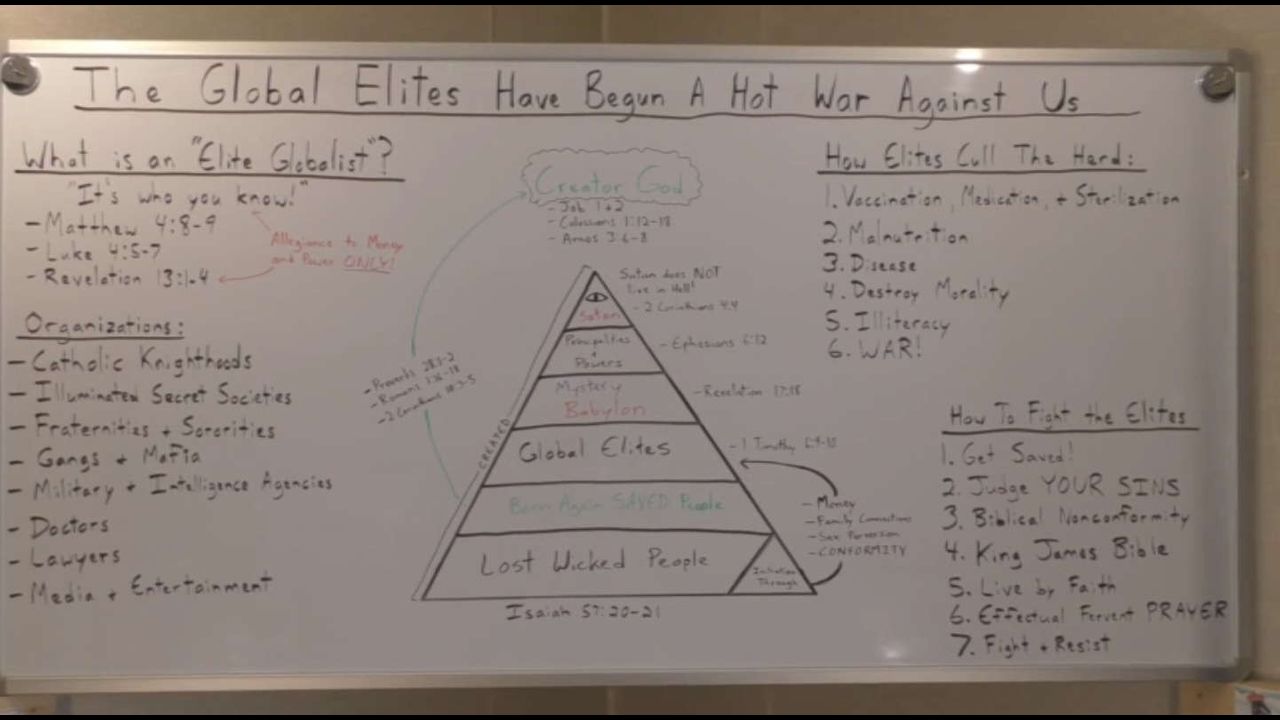 The Global Elites Have Begun A Hot War Against Us
What is an "Elite Globalist"?
"It's who you know!"
- Matthew 4:8-9
- Luke 4:5-7
- Revelation 13:1-4
Allegiance to Money
and Power ONLY!
Organizations:
- Catholic Knighthoods
- Illuminated Secret Societies
- Fraternities + Sororities
- Gangs + Mafia
- Military + Intelligence Agencies
- Doctors
- Lawyers
- Media + Entertainment
Creator God
- Job 1+2
- Colossians 1:12-18
- Amos 3:6-8
Satan does NOT
live in Hell!
- 2 Corinthians 4:4
Satan
Principalities
+
Powers
- Ephesians 6:12
Mystery
Babylon
- Revelation 17:18
Global Elites
- 1 Timothy 6:9-10
Born Again SAVED People
Lost Wicked People
Initiation
Through
Isaiah 57:20-21
CREATED
- Proverbs 28:1-2
- Romans 1:16-18
- 2 Corinthians 10:3-5
- Money
- Family Connections
- Sex Perversion
- CONFORMITY
How Elites Cull The Herd:
1. Vaccination, Medication, + Sterilization
2. Malnutrition
3. Disease
4. Destroy Morality
5. Illiteracy
6. WAR!
How To Fight the Elites
1. Get Saved!
2. Judge YOUR SINS
3. Biblical Nonconformity
4. King James Bible
5. Live by Faith
6. Effectual Fervent PRAYER
7. Fight + Resist